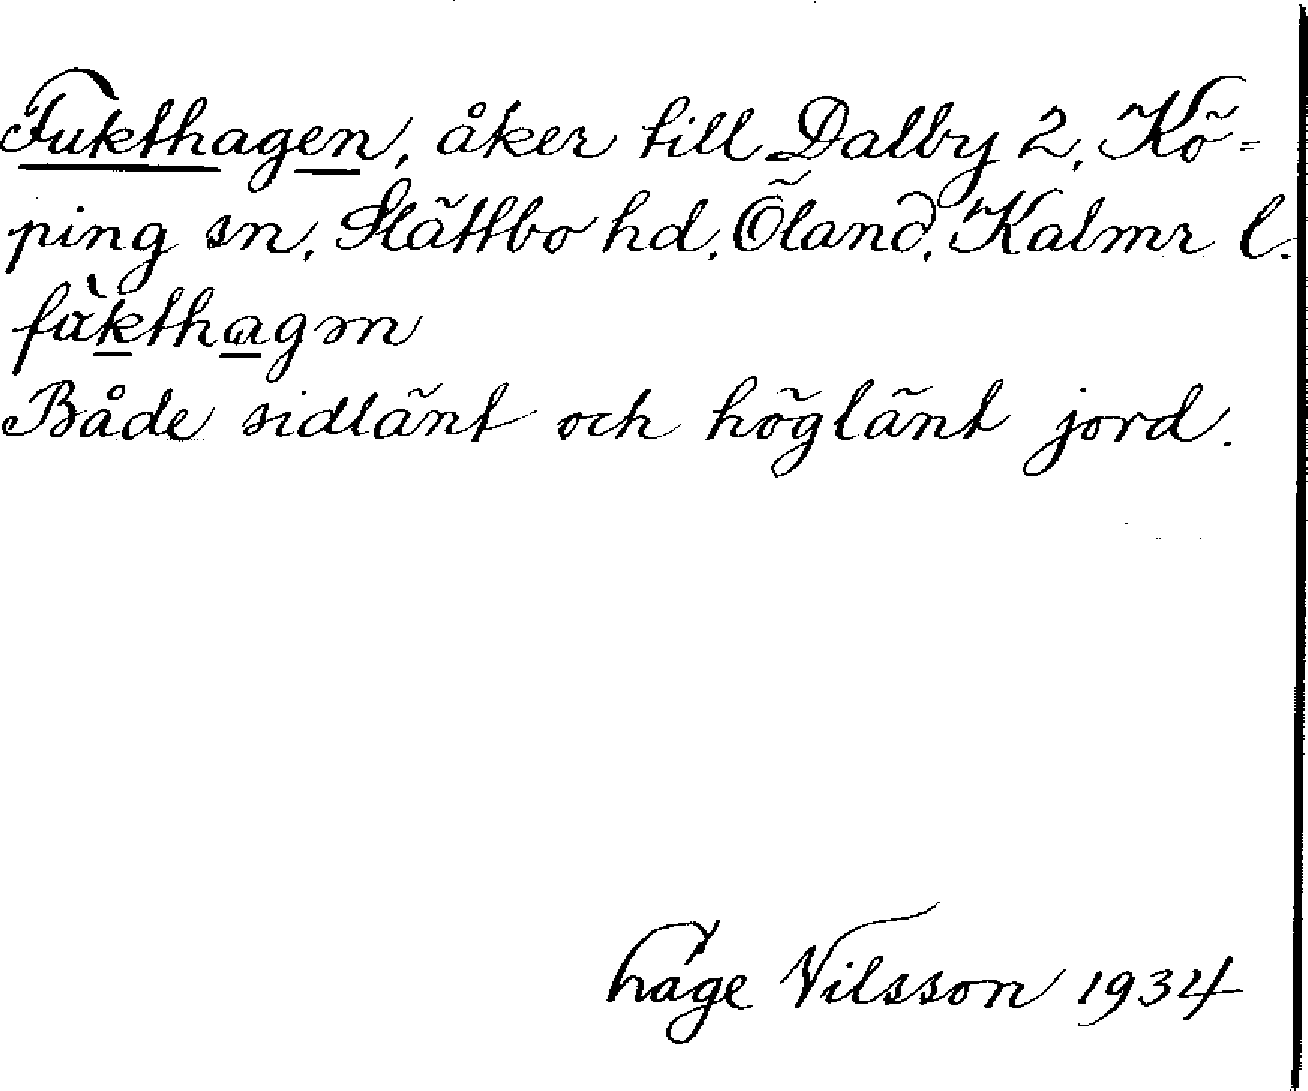 Fukthagen, åker till Dalby 2, Kö-
ping sn, Slättbo hd, Öland, Kalmr l.
fùkthagən
Både sidlänt och höglänt jord.
Håge Nilsson 1934